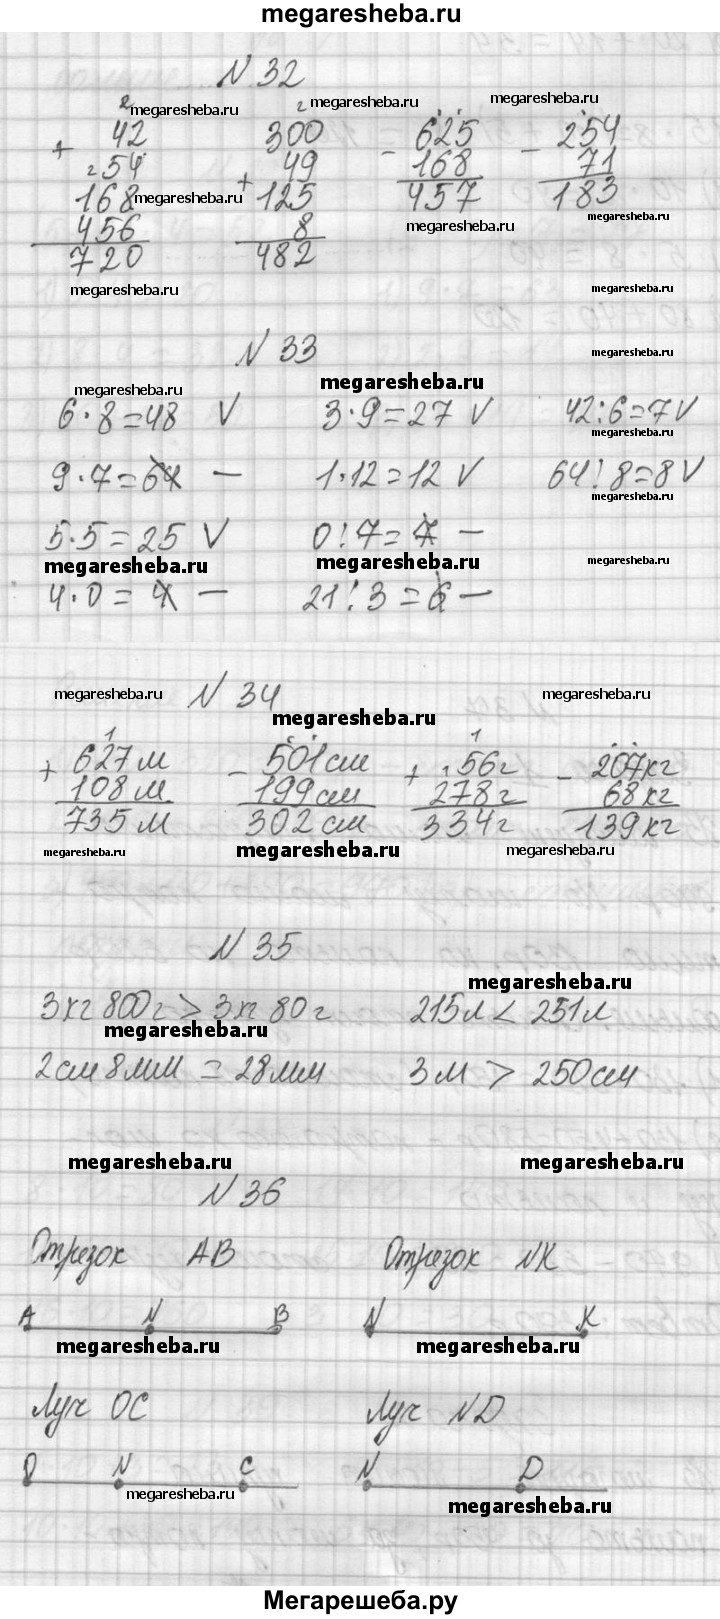 megaresheba.ru
N 32
2 megaresheba.ru 2 megaresheba.ru megaresheba.ru
+ 42 300 - 625 - 254
254 + 49 168 71
168 megaresheba.ru 125 457 183
456 8 megaresheba.ru megaresheba.ru
720 482
megaresheba.ru megaresheba.ru
N 33
megaresheba.ru megaresheba.ru megaresheba.ru
6·8=48 V 3·9=27 V 42:6=7 V
megaresheba.ru
9·7=64 — 1·12=12 V 64:8=8 V
megaresheba.ru
5·5=25 V 0:7=7 —
megaresheba.ru megaresheba.ru megaresheba.ru
4·0=4 — 21:3=6 —
megaresheba.ru N 34 megaresheba.ru
megaresheba.ru
1 1
+ 627 м - 501 см + 156 г - 207 кг
108 м 199 см 278 г 68 кг
735 м 302 см 334 г 139 кг
megaresheba.ru megaresheba.ru megaresheba.ru
N 35
megaresheba.ru
3 кг 800 г > 3 кг 80 г 215 л < 251 л
megaresheba.ru
2 см 8 мм = 28 мм 3 м > 250 см
megaresheba.ru megaresheba.ru
N 36
Отрезок АВ Отрезок NK
A N B N K
megaresheba.ru megaresheba.ru
Луч OC Луч ND
O N C N D
megaresheba.ru megaresheba.ru
Мегарешеба.ру